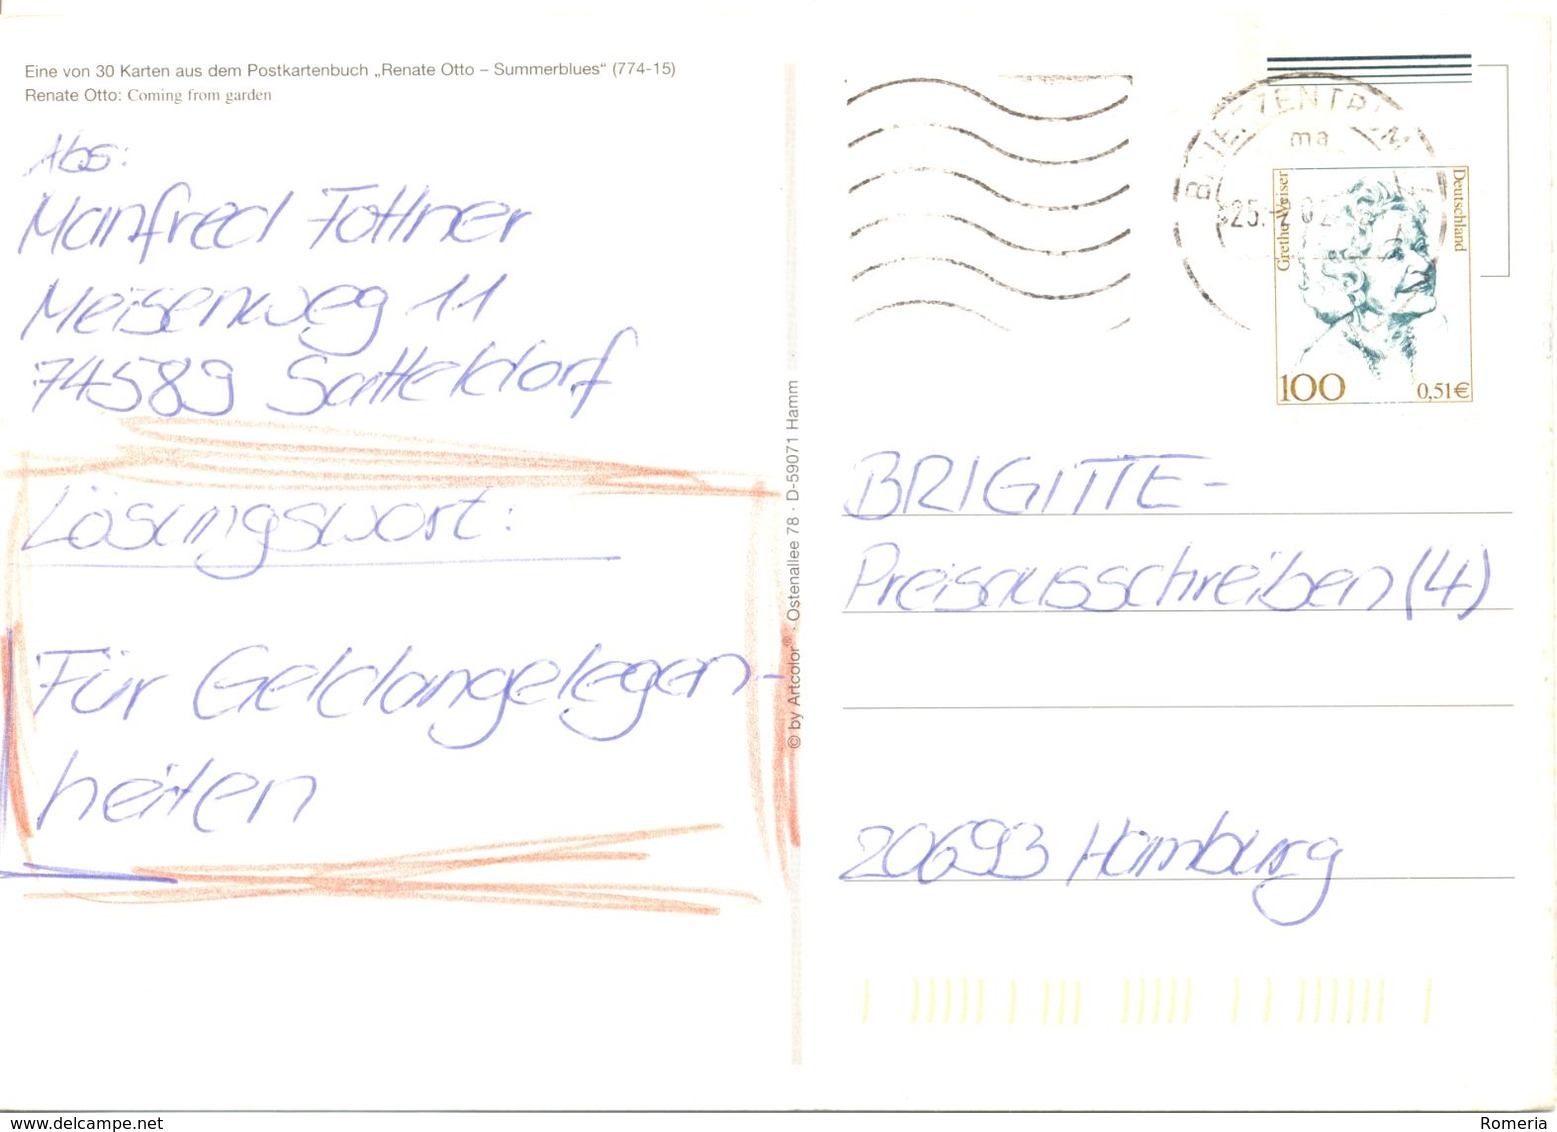 Eine von 30 Karten aus dem Postkartenbuch „Renate Otto – Summerblues“ (774-15)
Renate Otto: Coming from garden
Abs:
Manfred Fottner
Meisenweg 11
74589 Satteldorf
Lösungswort:
Für Geldangelegen-
heiten
© by Artcolor® · Ostenallee 78 · D-59071 Hamm
ma
25.
02
Grethe Weiser
Deutschland
100
0,51€
BRIGITTE-
Preisausschreiben (4)
20693 Hamburg
www.delcampe.net
Romeria